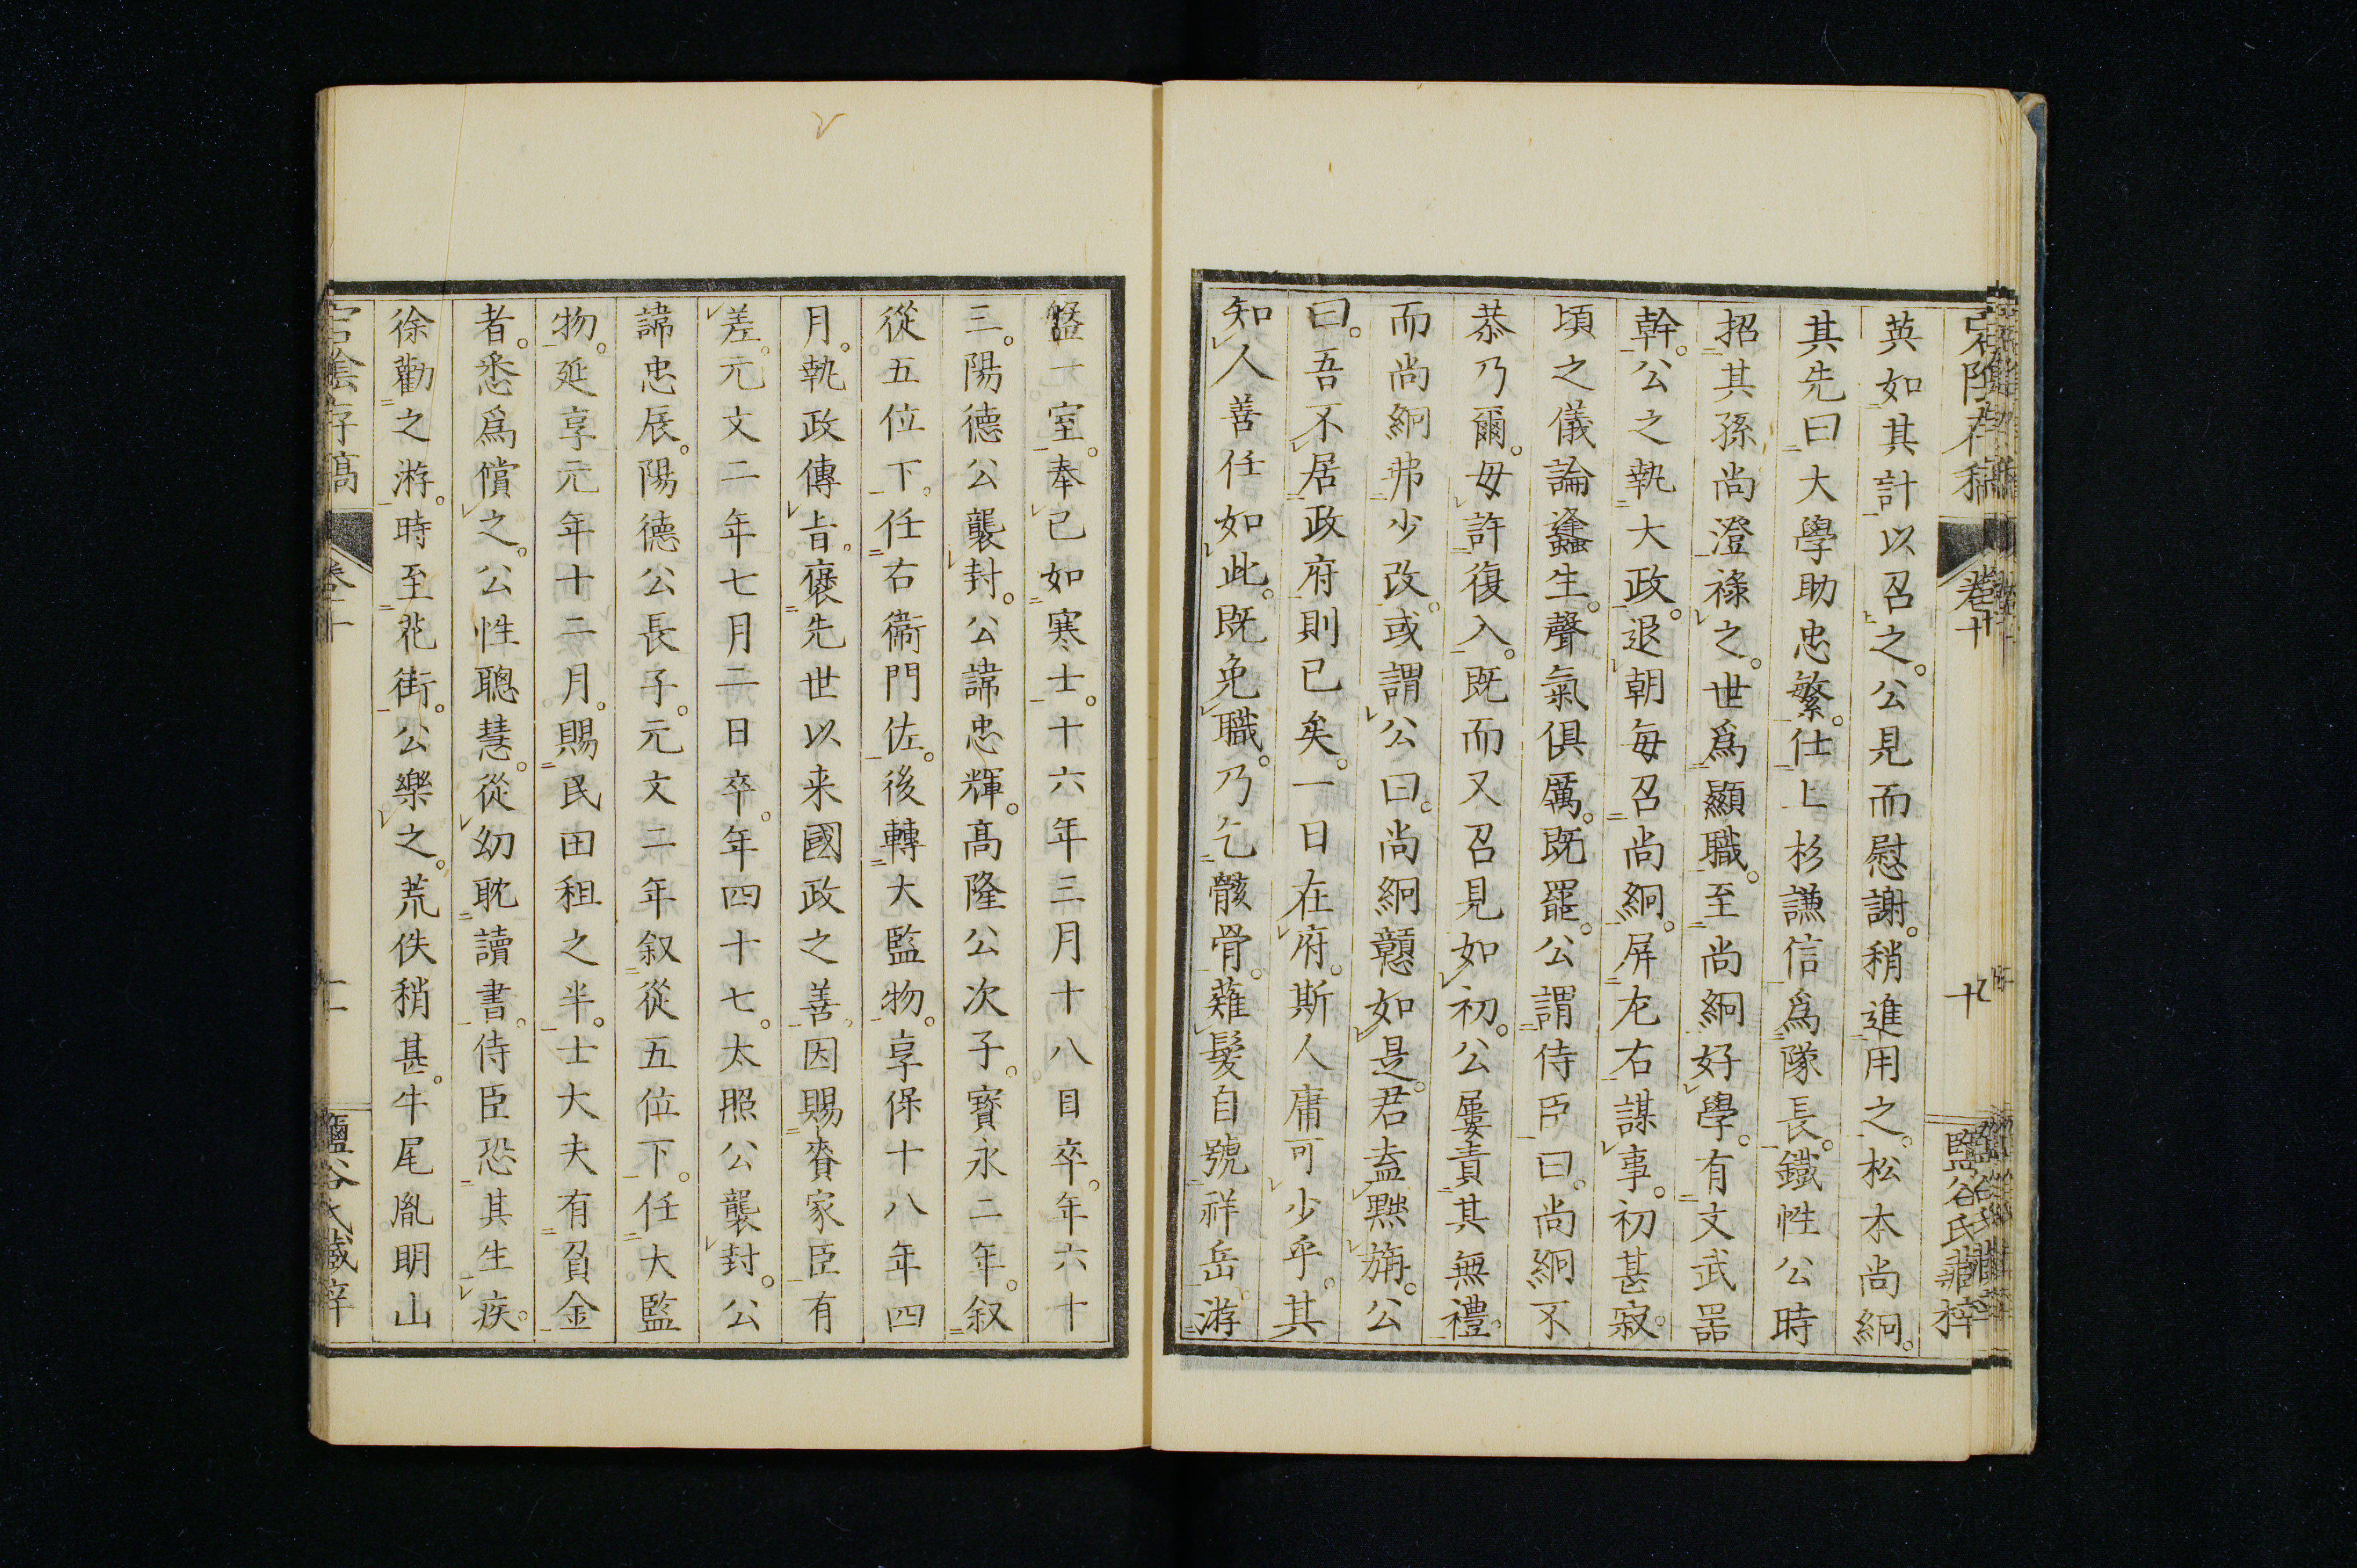 宕陰存稿 卷十 十 鹽谷氏藏梓
英如其計以召之。公見而慰謝。稍進用之。松本尚絅。
其先曰大學助忠繁。仕上杉謙信爲隊長。鐵性公時
招其孫尚澄祿之。世爲顯職。至尚絅好學。有文武器
幹。公之執大政。退朝每召尚絅。屏左右謀事。初甚寂。
頃之儀論蠭生。聲氣俱厲。既罷。公謂侍臣曰。尚絅不
恭乃爾。毋許復入。既而又召見如初。公屢責其無禮。
而尚絅弗少改。或謂公曰。尚絅戇如是。君盍黜旃。公
曰。吾不居政府則已矣。一日在府。斯人庸可少乎。其
知人善任如此。既免職。乃乞骸骨。薙髮自號祥岳。游
盤一室。奉已如寒士。十六年三月十八日卒。年六十
三。陽德公襲封。公諱忠輝。高隆公次子。寳永二年。叙
從五位下。任右衞門佐。後轉大監物。享保十八年四
月。執政傳旨。褒先世以来國政之善。因賜賚家臣有
差。元文二年七月二日卒。年四十七。太照公襲封。公
諱忠辰。陽德公長子。元文二年叙從五位下。任大監
物。延享元年十二月。賜民田租之半。士大夫有負金
者。悉爲償之。公性聰慧。從幼耽讀書。侍臣恐其生疾。
徐勸之游。時至花街。公樂之。荒佚稍甚。牛尾胤明山
宕陰存稿 卷十 十一 鹽谷氏藏梓